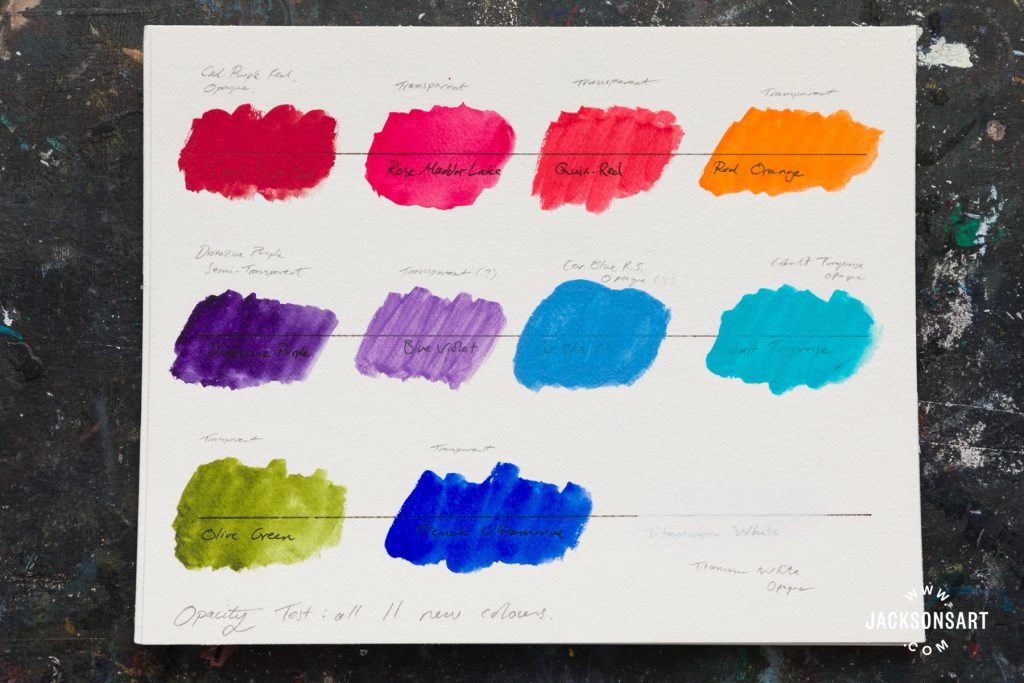 Cad. Purple Red.
Opaque.
Transparent
Transparent
Transparent
Rose Madder Lake
Quin. Red
Red Orange
Dioxazine Purple
Semi-Transparent
Transparent (?)
Cer. Blue P.S.
Opaque (?)
Cobalt Turquoise
Opaque
Dioxazine Purple
Blue Violet
Cer. Blue P.S.
Cobalt Turquoise
Transparent
Transparent
Olive Green
French Ultramarine
Titanium White
Titanium White
Opaque
Opacity Test: all 11 new colours.
WWW
JACKSONSART
.COM